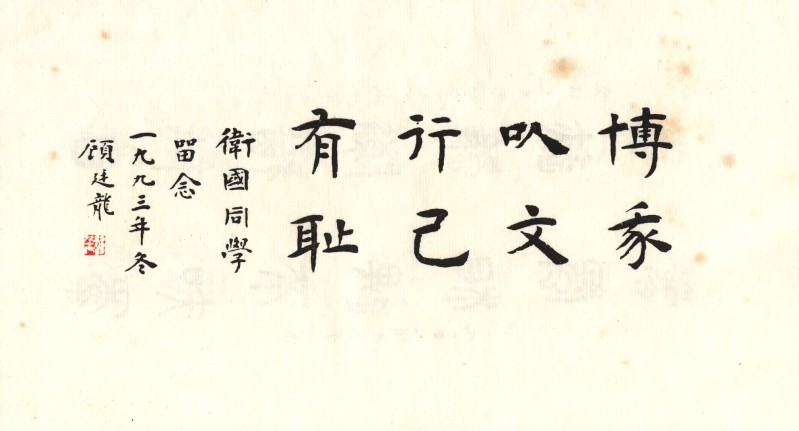 博我
㕥文
行己
有耻
衛國同學
留念
一九九三年冬
顧廷龍